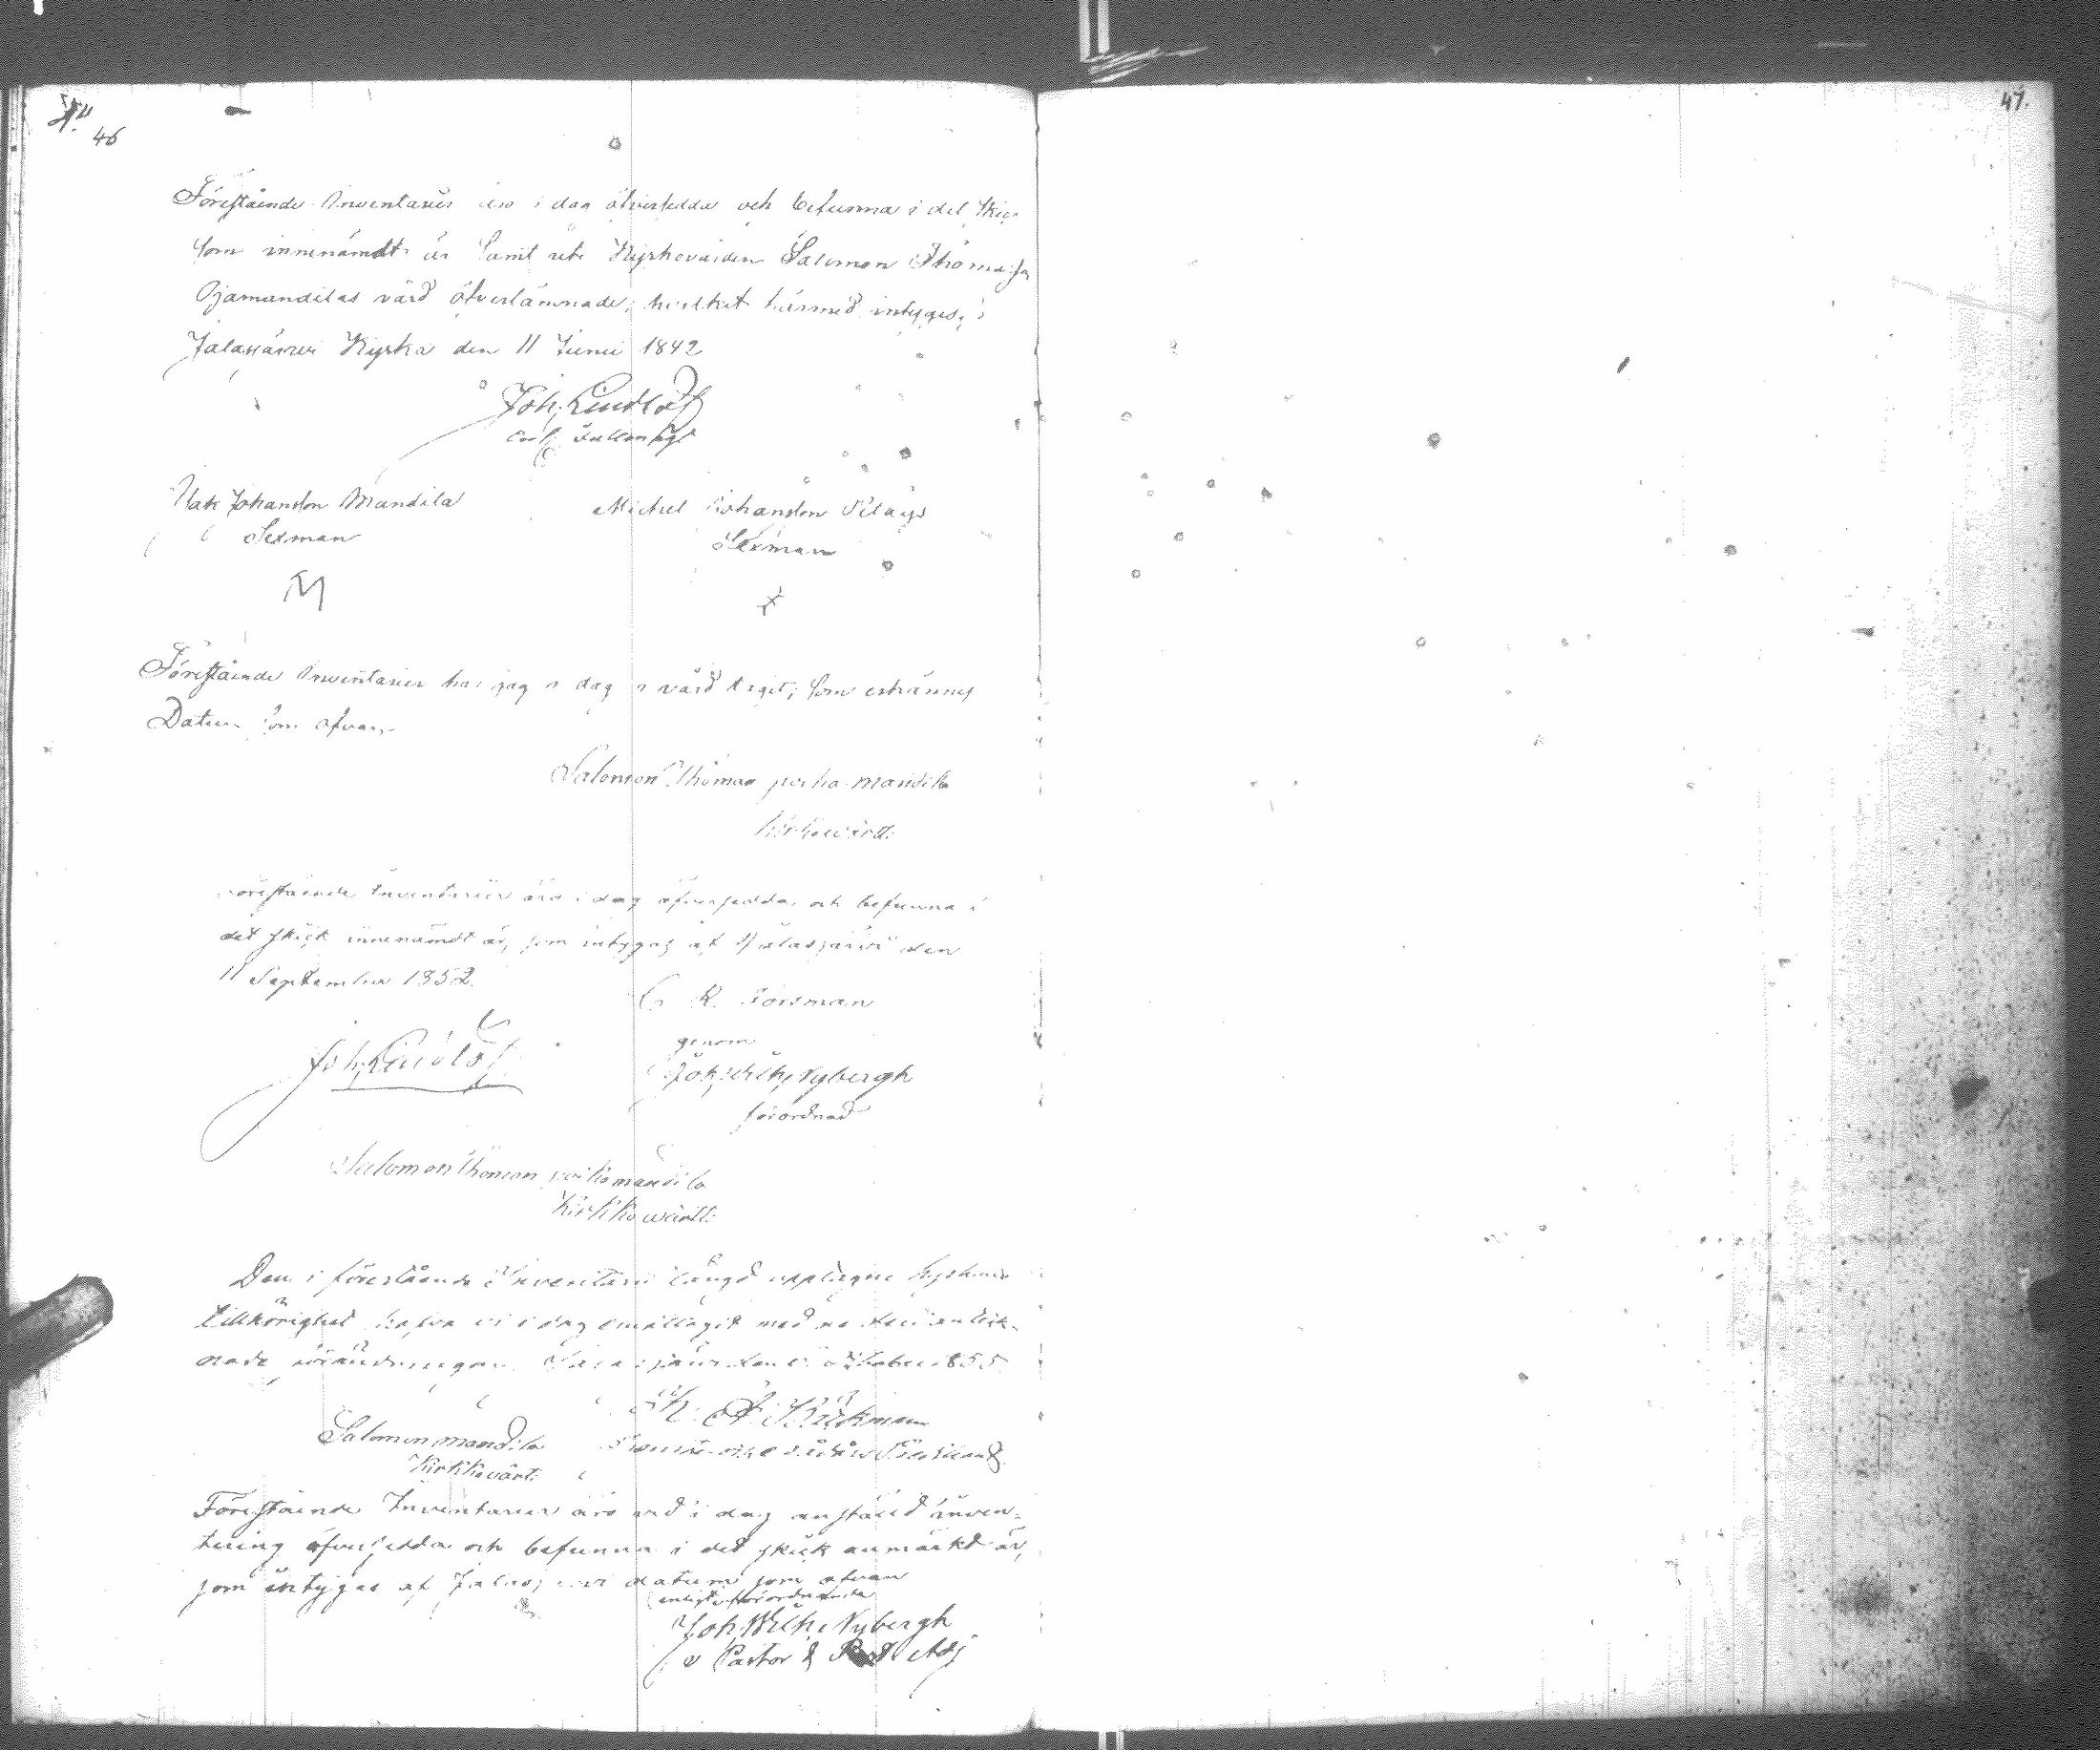 46
Förestående Inventarier äro i dag öfversedda och befunna i det skick
som innenämdt är samt uti Kyrkovärden Salomon Thomasson
Ojamandilas vård öfverlämnade, hvilket härmed intygas, i
Jalasjärvi Kyrka den 11 Junii 1842
Joh. Lindlöf
enl. fullmagt
Isak Johansson Mandila
Michel Johansson
Sexman
Sexman
Förestående Inventarier har jag i dag i vård tagit, som erkännes
Datum som ofvan
Salomon Thomas perha mandila
kirkowärtti
Föreståande Inventarier äro i dag öfversedda och befunna i
det skick innenämdt är, som intygas af Jalasjärvi den
11 September 1852.
G R. Forsman
genom
Joh. Lindlöf
Joh. Wilh. Nybergh
förordnad
Salomon Thoman perhomandila
Kirkkowärtti
Den i förestående Inventarii längd upptagne kyrkans
tillhörighet hafva vi i dag emottagit med
Oktober 1855
Salomon Mandila
Kirkkovärti
Föreståande Inventarier äro vid i dag anstäld inven-
tering öfversedda och befunna i det skick anmärkt är,
som intygas af Jalasjärvi datum som ofvan
enligt förordnande
Joh. Wilh. Nybergh
v Pastor & Adj
47.